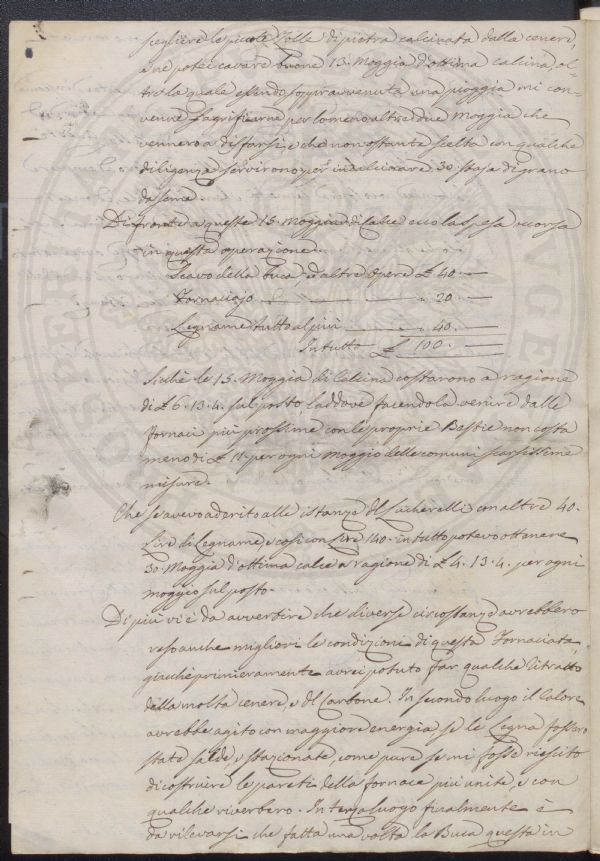 scegliere le piccole Zolle di pietra calcinata dalla cenere,
e ne potei cavare buone 13. Moggia d'ottima calcina, ol=
tre la quale essendo sopravvenuta una pioggia mi con=
venne sagrificarne per lo meno altre due Moggia che
vennero a disfarsi, e che non ostante scelta con qualche
diligenza servirono per incalcinare 30. staja di grano
da seme.
Di fronte a queste 15. Moggia di Calce ecco la spesa occorsa
in questa operazione.
Scavo della buca, ed altre opere £ 40. —
Fornaciajo — 20 —
Legname tutto al più — 40. —
In tutto £ 100. —
Sicchè le 15. Moggia di Calcina costarono a ragione
di £ 6. 13. 4. sul posto, laddove facendola venire dalle
fornaci più prossime con le proprie Bestie non costa
meno di £ 11. per ogni Moggio delle comuni scarsissime
misure.
Che se avevo aderito alle istanze del Sacherelli con altre 40.
Lire di Legname, e così con Lire 140. in tutto potevo ottenere
30. Moggia d'ottima calce a ragione di £ 4. 13. 4. per ogni
moggio sul posto.
Di più vi è da avvertire che diverse circostanze avrebbero
reso anche migliori le condizioni di questa Fornaciata,
giacchè primieramente avrei potuto far qualche ritratto
della molta cenere, e del Carbone. In secondo luogo il Calore
avrebbe agito con maggiore energia se le Legna fossero
state salde, e stagionate, come pure se mi fosse riescito
di costruire le pareti della fornace più unite, e con
qualche riverbero. In terzo luogo finalmente è
da rilevarsi che fatta una volta la Buca questa in